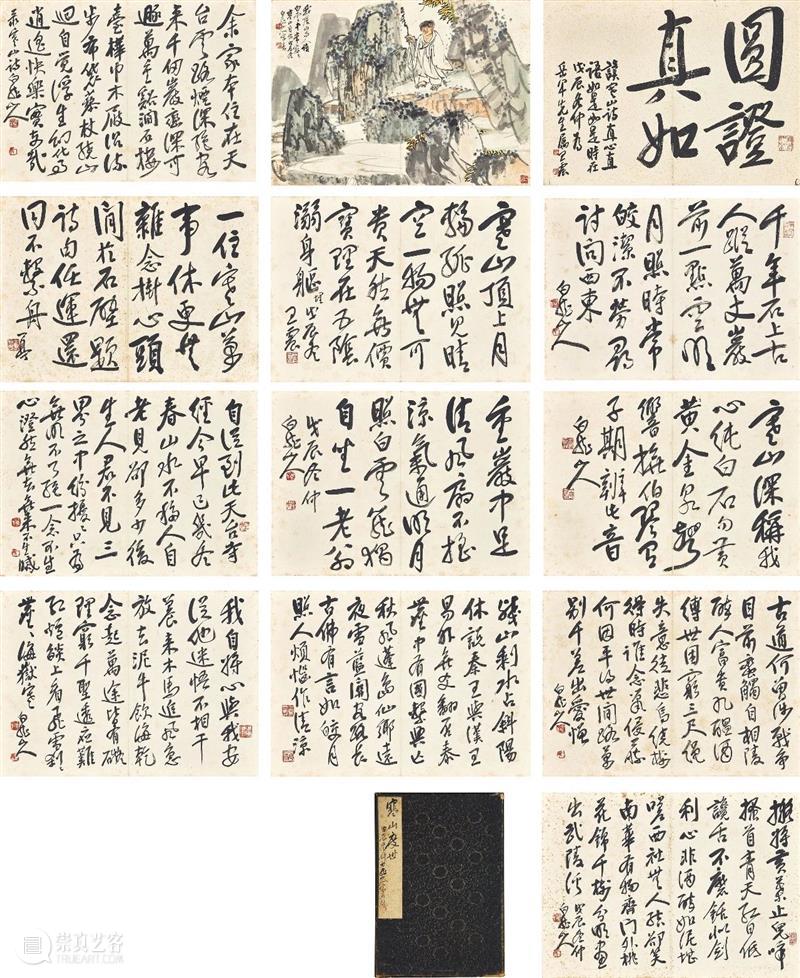 圓證
真如
讀寒山詩真心直
語如是如是時在
戊辰冬仲為
岳軍先生屬 王震
余家本住在天
台雲路煙深絕客
來千仞巖巒深可
遯萬重谿澗石樓
臺樺巾木屐沿流
步布裘藜杖繞山
迴自覺浮生幻化事
逍遙快樂實奇哉
錄寒山詩白龍山人
千年石上古
人蹤萬丈巖
前一點空明
月照時常
皎潔不勞尋
討問西東
白龍山人
寒山頂上月
輪孤照見晴
空一物無可
貴天然無價
寶埋在五陰
溺身軀 時戊辰冬
王震
一住寒山萬
事休更無
雜念掛心頭
閒於石壁題
詩句任運還
同不繫舟 一亭
寒山深稱我
心純白石勿
黃金泉聲
響撫伯琴有
子期辨此音
白龍山人
重巖中足
清風扇不搖
涼氣通明月
照白雲籠獨
自坐一老翁
戊辰冬仲
白龍山人
自從到此天台寺
經今早已幾冬
春山水不移人自
老見卻多少後
生人君不見三
界之中紛擾只為
無明不了絕一念不生
心澄然無去無來不生滅
古道何曾涉戰爭
目前蠻觸自相陵
醉人富貴醲酒
縛世困窮三尺繩
失意徒悲烏繞樹
得時誰念兔侵藤
何因平得世間路萬
別千差出愛憎
白龍山人
殘山剩水占斜陽
休說秦王與漢王
易外無文翻否泰
中有國興亡
秋風蓬島仙鄉遠
夜雪藍關客路長
古佛有言如皎月
照人煩惱作清涼
我自將心與我安
從他迷悟不相干
晨來木馬追風急
放去泥牛飲海乾
念起萬途皆有礙
理窮千聖遠應難
紅爐燄上看飛雪剎剎
塵塵海嶽寒 白龍山人
擬將黃葉止兒啼
搔首青天紅日低
讒舌不磨銛似劍
利心非酒醉如泥堪
嗟西社無人結卻笑
南華有物齊門外桃
花錦千樹分明畫
出武陵溪 戊辰冬仲
白龍山人
寒山度世
崇真艺客